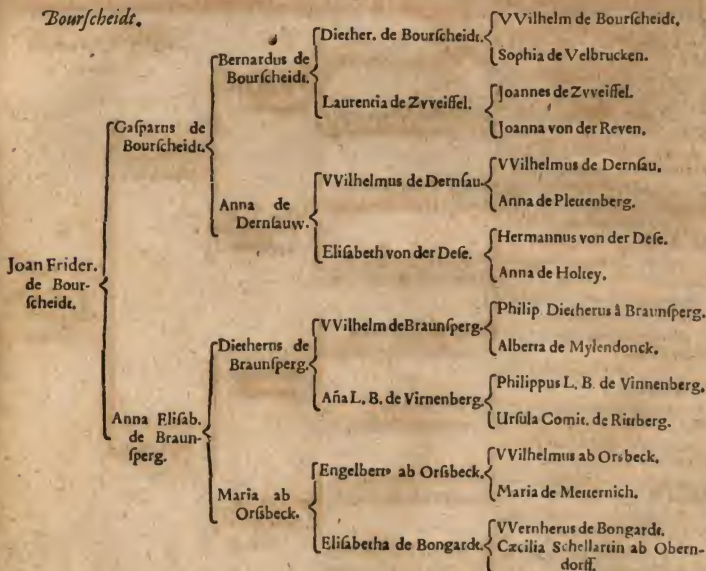 Bourſcheidt.
Joan Frider.
de Bour-
ſcheidt.
Gaſparns de
Bourſcheidt.
Anna Eliſab.
de Braun-
ſperg.
Bernardus de
Bourſcheidt.
Anna de
Dernſauw.
Dietherns de
Braunſperg.
Maria ab
Orſsbeck.
Diether. de Bourſcheidt.
Laurentia de Zvveiffel.
VVilhelmus de Dernſau.
Eliſabeth von der Deſe.
VVilhelm de Braunſperg.
Aña L. B. de Virnenberg.
Engelbertꝰ ab Orſsbeck.
Eliſabetha de Bongardt.
VVilhelm de Bourſcheidt.
Sophia de Velbrucken.
Joannes de Zvveiffel.
Joanna von der Reven.
VVilhelmus de Dernſau.
Anna de Plettenberg.
Hermannus von der Deſe.
Anna de Holtey.
Philip Dietherus â Braunſperg.
Alberta de Mylendonck.
Philippus L. B. de Vinnenberg.
Urſula Comit. de Rittberg.
VVilhelmus ab Orsbeck.
Maria de Metternich.
VVernherus de Bongardt.
Cæcilia Schellartin ab Obern-
dorff.